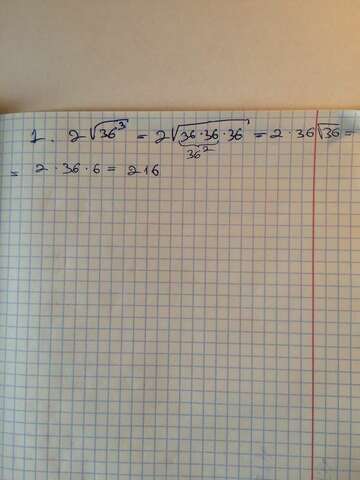 1. 2√36³ = 2√36·36·36 = 2·36√36 =
36²
= 2·36·6 = 216